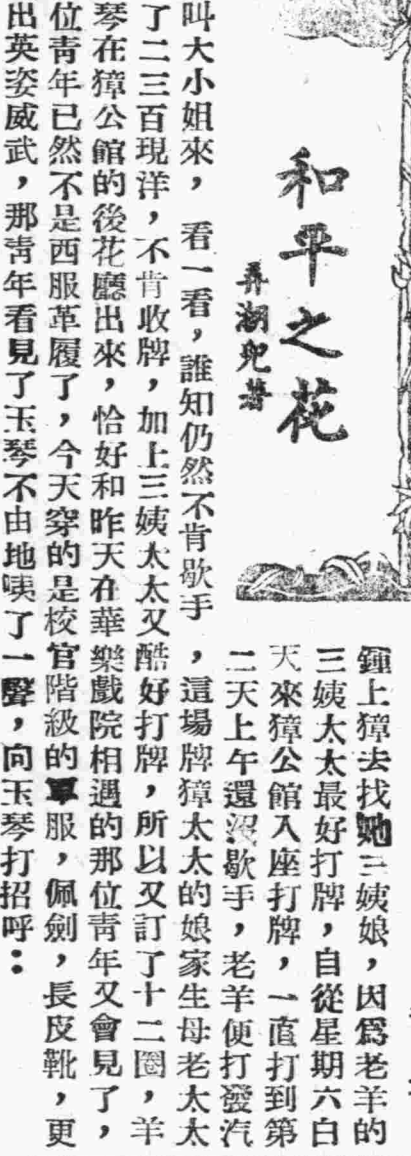 和平之花
弄潮兒著
鍾上獐去找她三姨娘，因爲老羊的
三姨太太最好打牌，自從星期六白
天來獐公館入座打牌，一直打到第
二天上午還沒歇手，老羊便打發汽
叫大小姐來，看一看，誰知仍然不肯歇手，這場牌獐太太的娘家生母老太太
了二三百現洋，不肯收牌，加上三姨太太又酷好打牌，所以又訂了十二圈，羊
琴在獐公館的後花廳出來，恰好和昨天在華樂戲院相遇的那位靑年又會見了，
位靑年已然不是西服革履了，今天穿的是校官階級的軍服，佩劍，長皮靴，更
出英姿威武，那靑年看見了玉琴不由地咦了一聲，向玉琴打招呼：